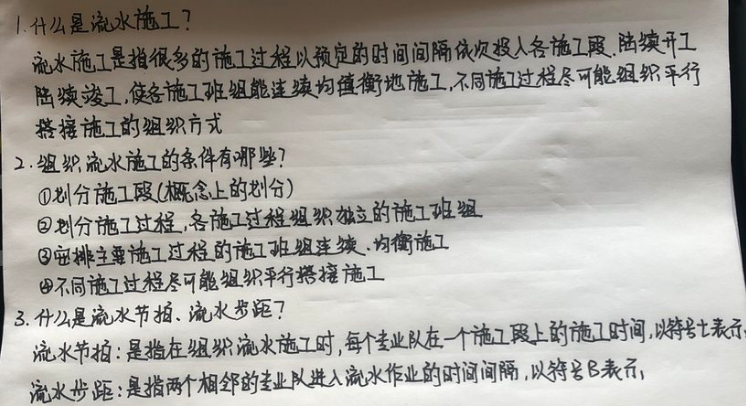 1.什么是流水施工?
流水施工是指很多的施工过程以预定的时间间隔依次投入各施工段,陆续开工
陆续竣工,使各施工班组能连续均值衡地施工,不同施工过程尽可能组织平行
搭接施工的组织方式
2.组织流水施工的条件有哪些?
①划分施工段(概念上的划分)
②划分施工过程,各施工过程组织独立的施工班组
③安排主要施工过程的施工班组连续、均衡施工
④不同施工过程尽可能组织平行搭接施工
3.什么是流水节拍、流水步距?
流水节拍:是指在组织流水施工时,每个专业队在一个施工段上的施工时间,以符号t表示,
流水步距:是指两个相邻的专业队进入流水作业的时间间隔,以符号B表示,